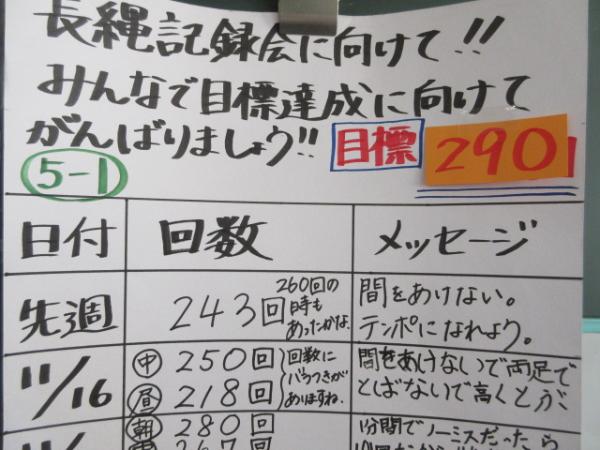 長縄記録会に向けて!!
みんなで目標達成に向けて
がんばりましょう!!
目標 290
5-1
日付 回数 メッセージ
先週 243回
260回の
時も
あったかな。
間をあけない。
テンポになれよう。
11/16
中 250回
昼 218回
回数に
バラつきが
ありますね。
間をあけないで両足で
とばないで高くとぶ
朝 280回
1分間でノーミスだったら